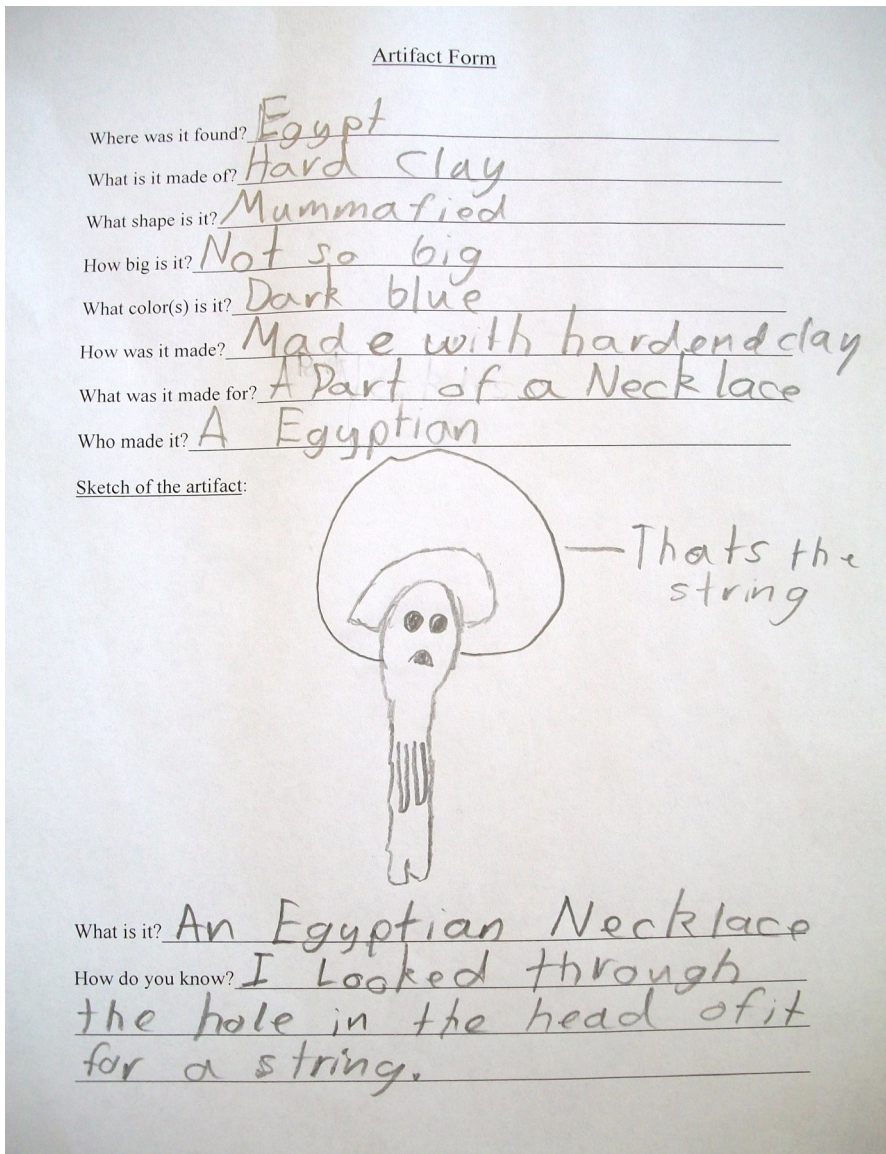 Artifact Form
Where was it found? Egypt
What is it made of? Hard Clay
What shape is it? Mummafied
How big is it? Not so big
What color(s) is it? Dark blue
How was it made? Made with hardend clay
What was it made for? A Part of a Necklace
Who made it? A Egyptian
Sketch of the artifact:
Thats the
string
What is it? An Egyptian Necklace
How do you know? I Looked through
the hole in the head of it
for a string.